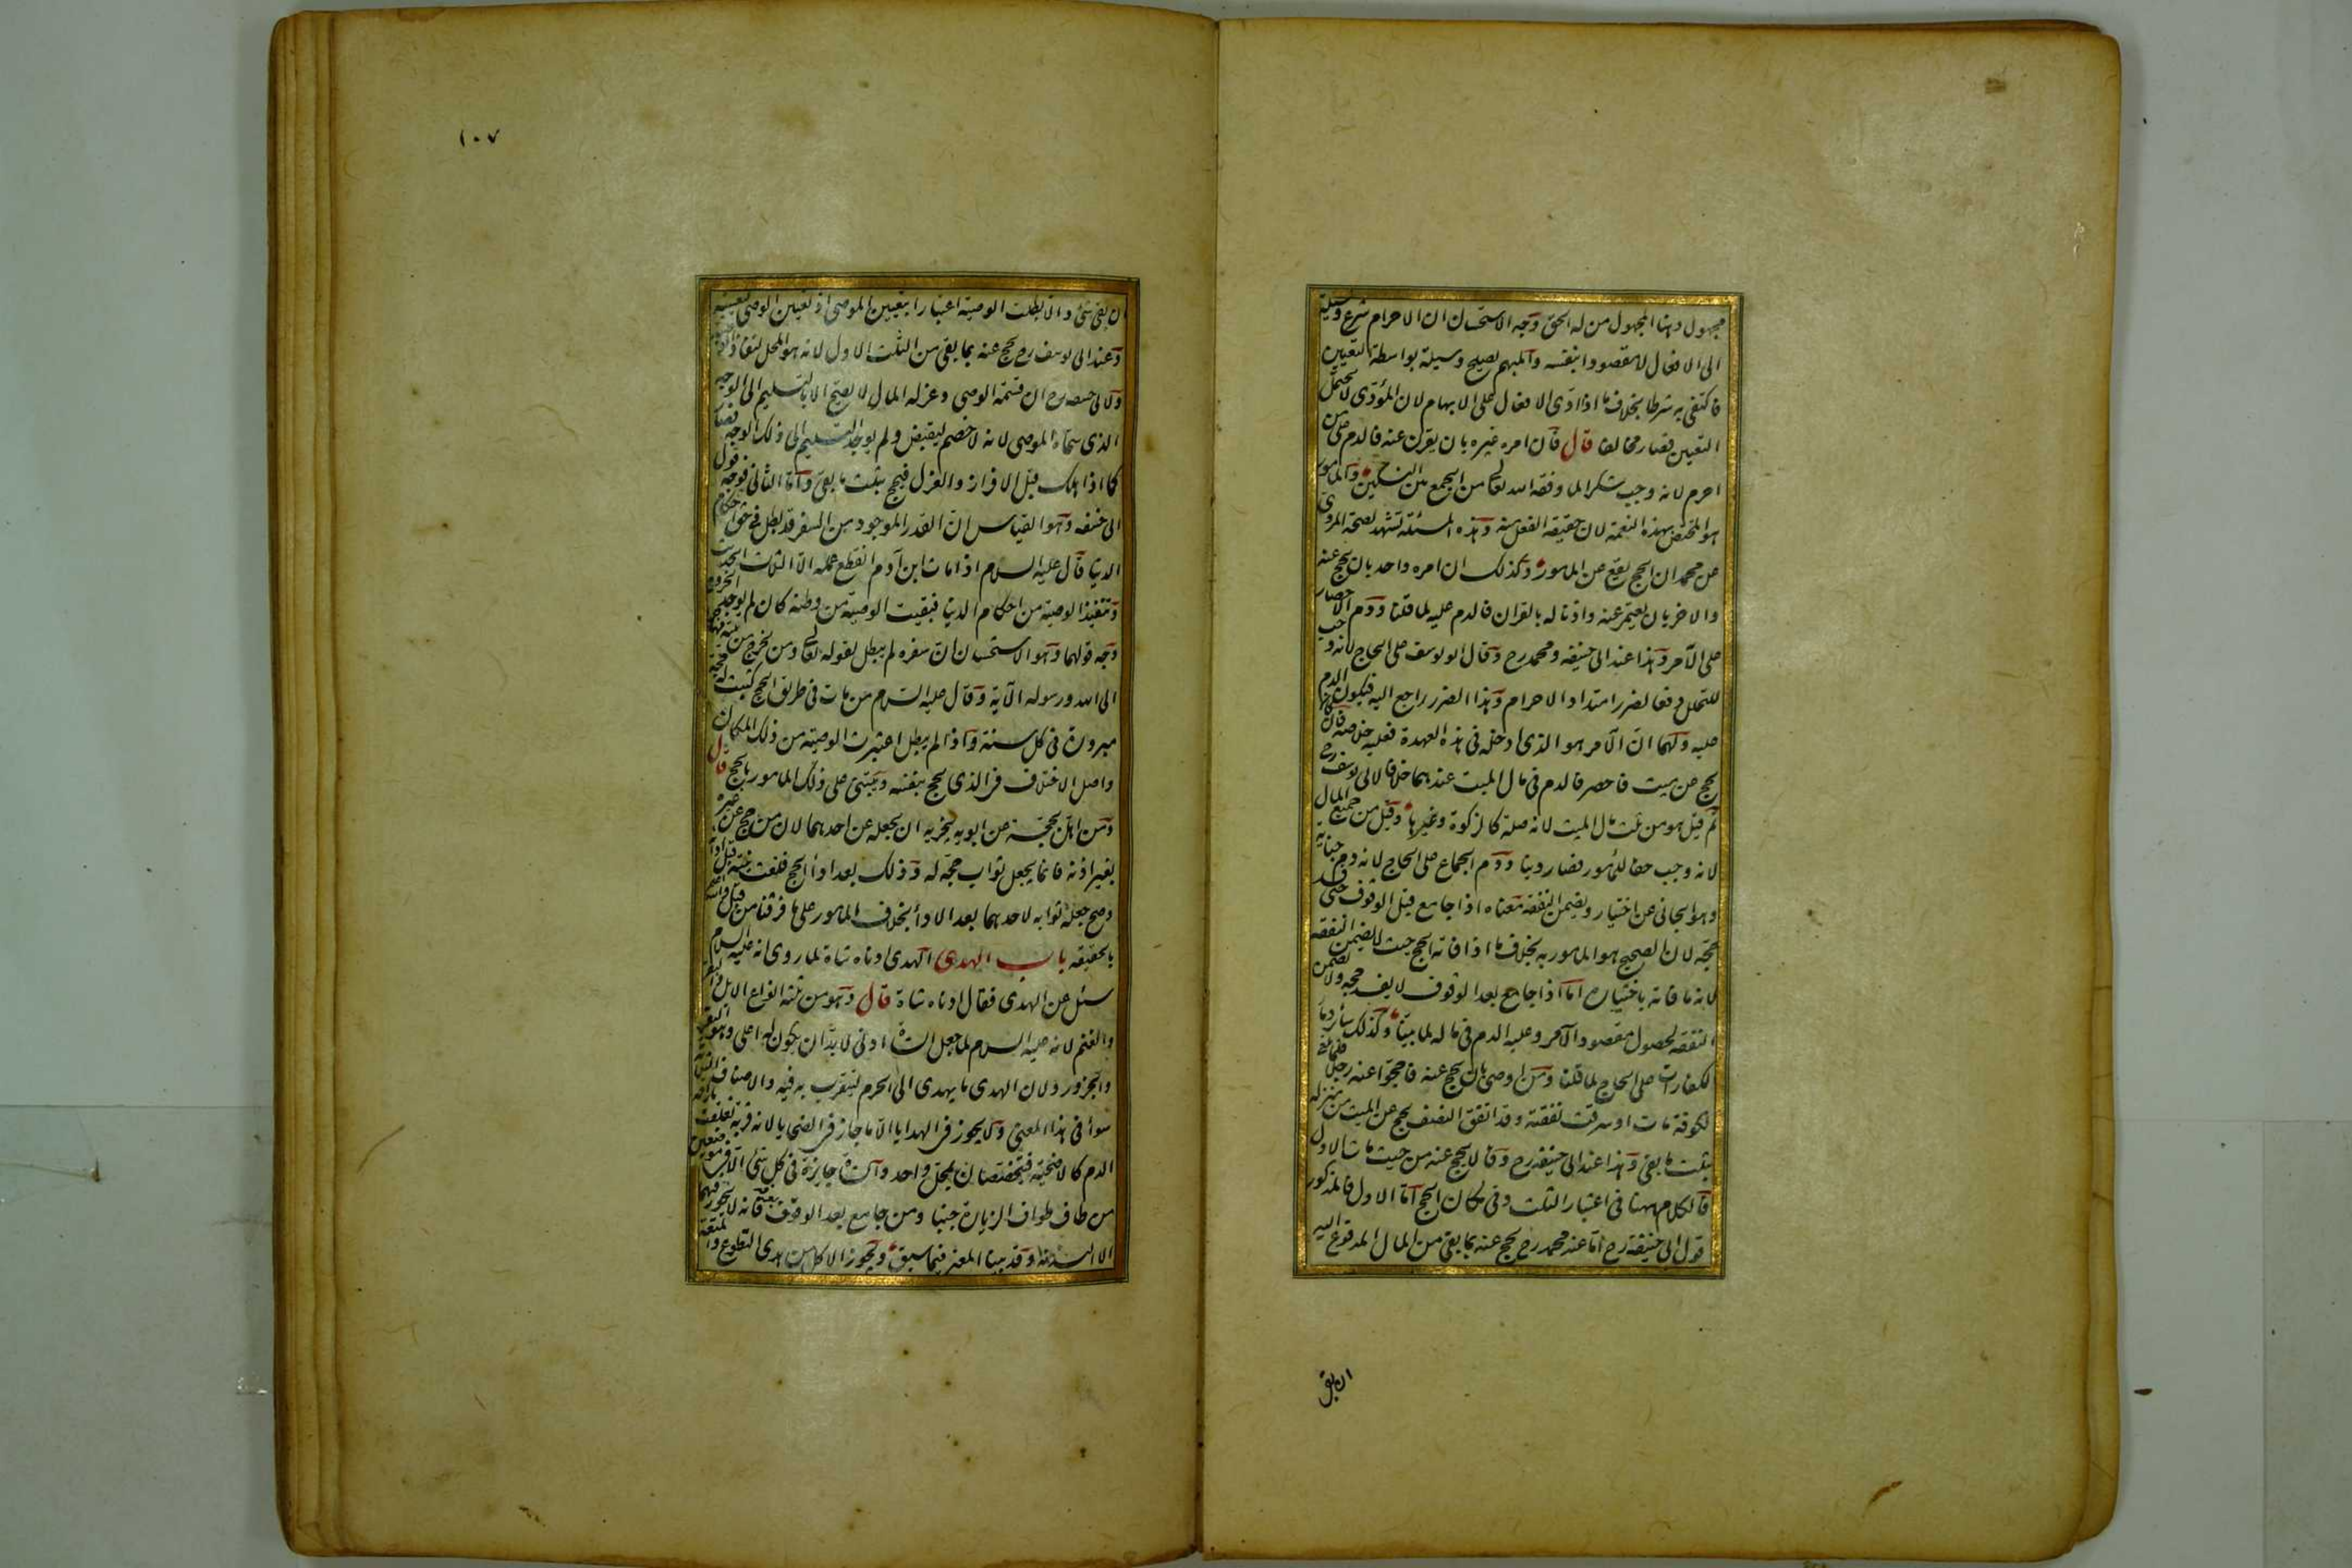 مجهول وهنا المجهول من له الحق وجه الاستحسان ان الاحرام شرع وسيلة
الى الافعال لا مقصودا بنفسه والمبهم يصلح وسيلة بواسطة التعيين
فاكتفى به شرطا بخلاف ما اذا ادى الافعال على الابهام لان المؤدى لا يحتمل
التعيين فصار مخالفا قال فان امره غيره بان يقرن عنه فالدم على من
احرم لانه وجب شكرا لما وفقه الله تعالى من الجمع بين النسكين والمامور
هو المختص بهذه النعمة لان حقيقة الفعل منه وهذه المسئلة تشهد لصحة المروى
عن محمد ان الحج يقع عن المامور وكذلك ان امره واحد بان يحج عنه
والاخر بان يعتمر عنه واذنا له بالقران فالدم عليه لما قلنا ودم الاحصار
على الآمر وهذا عند ابى حنيفه ومحمد رح وقال ابو يوسف على الحاج لانه وجب
للتحلل دفعا لضرر امتداد الاحرام وهذا الضرر راجع اليه فيكون الدم
عليه ولهما ان الآمر هو الذى ادخله فى هذه العهدة فعليه خلاصه فان كان
يحج عن ميت فاحصر فالدم فى مال الميت عندهما خلافا لابى يوسف رح
ثم قيل هو من ثلث مال الميت لانه صلة كالزكوة وغيرها وقيل من جميع المال
لانه وجب حقا للمأمور فصار دينا ودم الجماع على الحاج لانه دم جناية
وهو الجانى عن اختيار ويضمن النفقة معناه اذا جامع قبل الوقوف حتى فسد
حجه لان الصحيح هو المامور به بخلاف ما اذا فاته الحج حيث لا يضمن النفقه
لانه ما فاته باختياره اما اذا جامع بعد الوقوف لا يفسد حجه ولا يضمن
النفقه لحصول مقصود الآمر وعليه الدم فى ماله لما بينا وكذلك سائر دما
الكفارات على الحاج لما قلنا ومن اوصى بان يحج عنه فاحجوا عنه رجلا فلما بلغ
الكوفة مات او سرقت نفقته وقد انفق النصف يحج عن الميت من منزله
بثلث ما بقى وهذا عند ابى حنيفه رح وقالا يحج عنه من حيث مات الاول
فالكلام ههنا فى اعتبار الثلث وفى مكان الحج اما الاول فالمذكور
قول ابى حنيفة رح اما عند محمد رح يحج عنه بما بقى من المال المدفوع اليه
ان بقى
١٠٧
ان بقى شئ والا بطلت الوصية اعتبارا بتعيين الموصى اذ تعيين الوصى كتعيينه
وعند ابى يوسف رح يحج عنه بما بقى من الثلث الاول لانه هو المحل لنفاذ الوصية
ولابى حنيفه رح ان قسمة الوصى وعزله المال لا يصح الا بالتسليم الى الوجه
الذى سماه الموصى لانه لا خصم ليقبض ولم يوجد التسليم الى ذلك الوجه فصار
كما اذا هلك قبل الافراز والعزل فيحج بثلث ما بقى واما الثانى فوجه قول
ابى حنيفه وهو القياس ان القدر الموجود من السفر قد بطل فى حق احكام
الدنيا قال عليه السلام اذا مات ابن آدم انقطع عمله الا الثلاث الحديث
وتنفيذ الوصية من احكام الدنيا فبقيت الوصية من وطنه كان لم يوجد الخروج
وجه قولهما وهو الاستحسان ان سفره لم يبطل لقوله تعالى ومن يخرج من بيته مهاجرا
الى الله ورسوله الآية وقال عليه السلام من مات فى طريق الحج كتبت له حجة
مبرورة فى كل سنة واذا لم يبطل اعتبرت الوصية من ذلك المكان
واصل الاختلاف فى الذى يحج بنفسه ويبتنى على ذلك المامور بالحج قال
ومن اهل بحجة عن ابويه يجزيه ان يجعله عن احدهما لان من حج عن غيره
بغير اذنه فانما يجعل ثواب حجه له وذلك بعد اداء الحج فلغت نيته قبل ادائه
وصح جعله ثوابه لاحدهما بعد الاداء بخلاف المامور على ما فرقنا من قبل والله اعلم
بالحقيقه باب الهدى الهدى ادناه شاة لما روى انه عليه السلام
سئل عن الهدى فقال ادناه شاة قال وهو من ثلثه انواع الابل والبقر
والغنم لانه عليه السلام لما جعل الشاة ادنى لا بد ان يكون له اعلى وهو البقر
والجزور ولان الهدى ما يهدى الى الحرم ليتقرب به فيه والاصناف الثلثة
سواء فى هذا المعنى ولا يجوز فى الهدايا الا ما جاز فى الضحايا لانه قربة تعلقت باراقة
الدم كالاضحية فيختصان بمحل واحد والشاة جايزة فى كل شئ الا فى موضعين
من طاف طواف الزيارة جنبا ومن جامع بعد الوقوف بعرفه فانه لا يجوز فيهما
الا البدنة وقد بينا المعنى فيما سبق ويجوز الاكل من هدى التطوع والمتعة